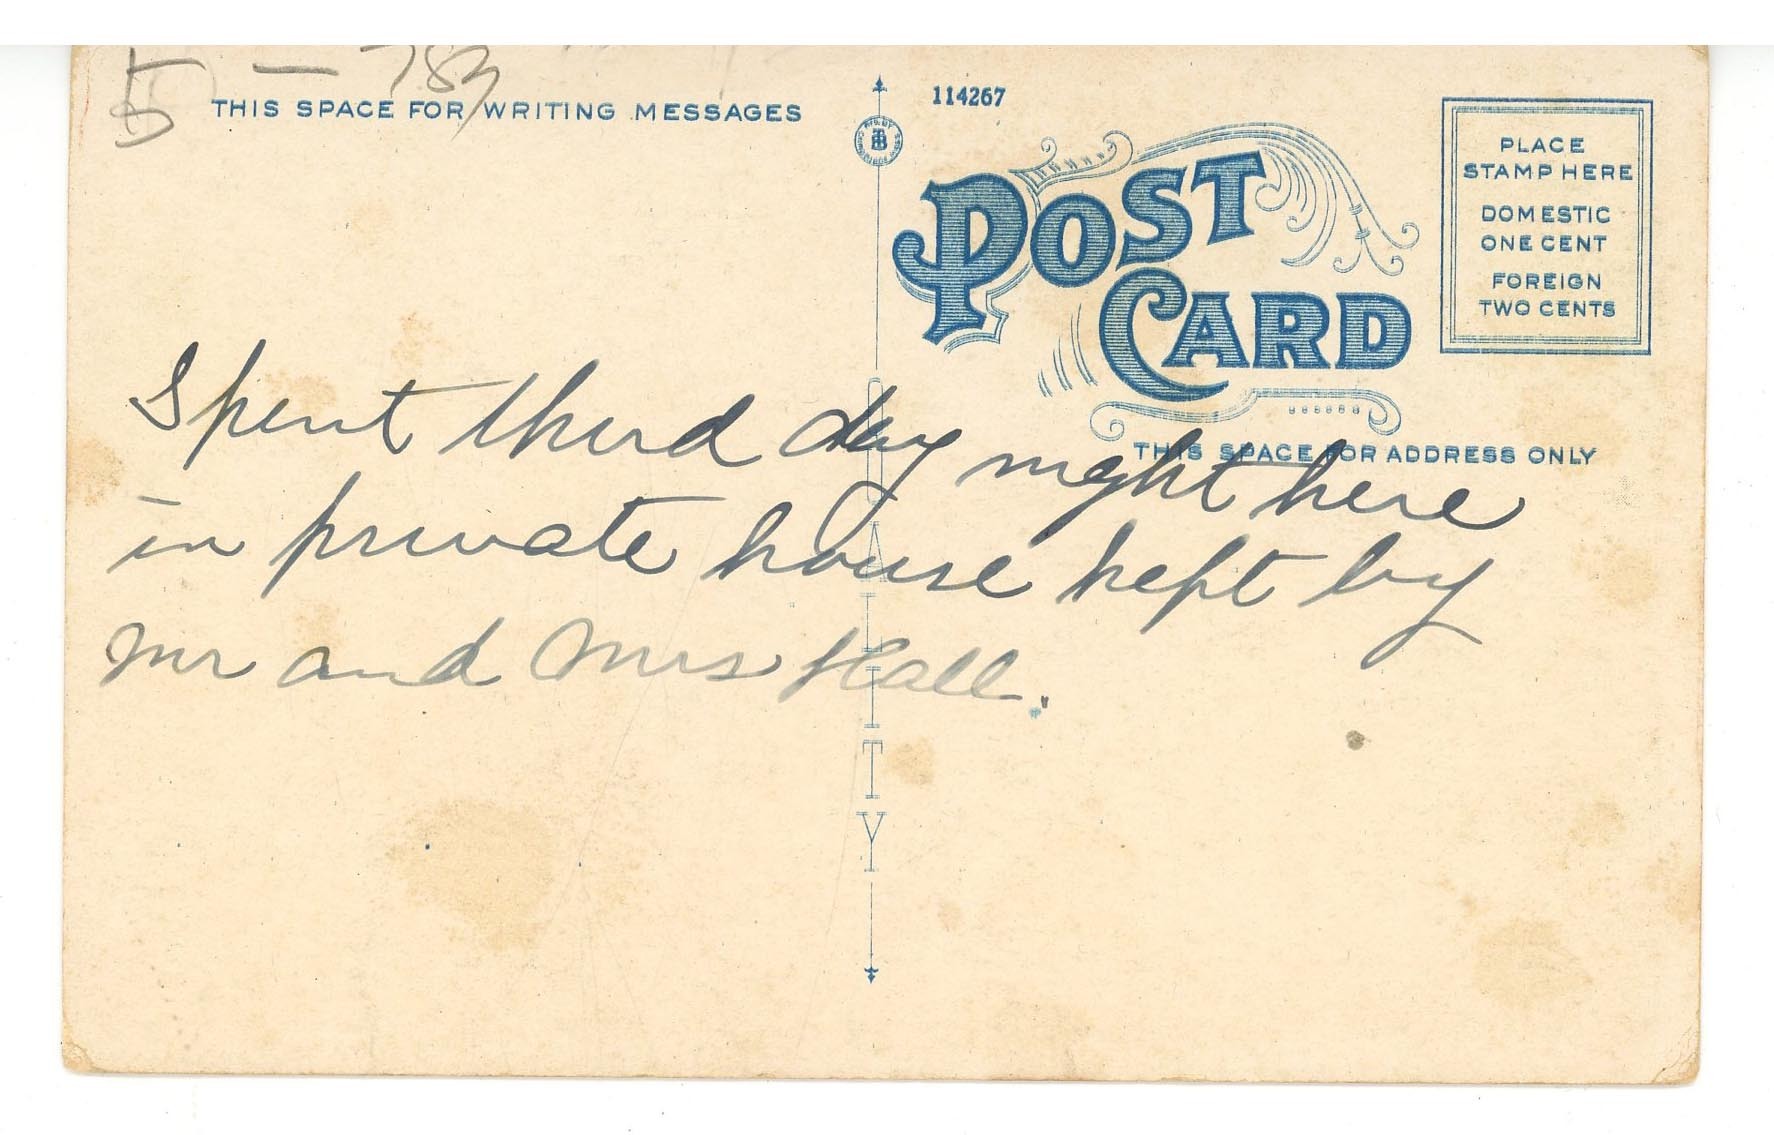 5 — 783
THIS SPACE FOR WRITING MESSAGES
114267
POST
CARD
PLACE
STAMP HERE
DOMESTIC
ONE CENT
FOREIGN
TWO CENTS
THIS SPACE FOR ADDRESS ONLY
Spent third day night here
in private house kept by
Mr and Mrs Hall.
QUALITY